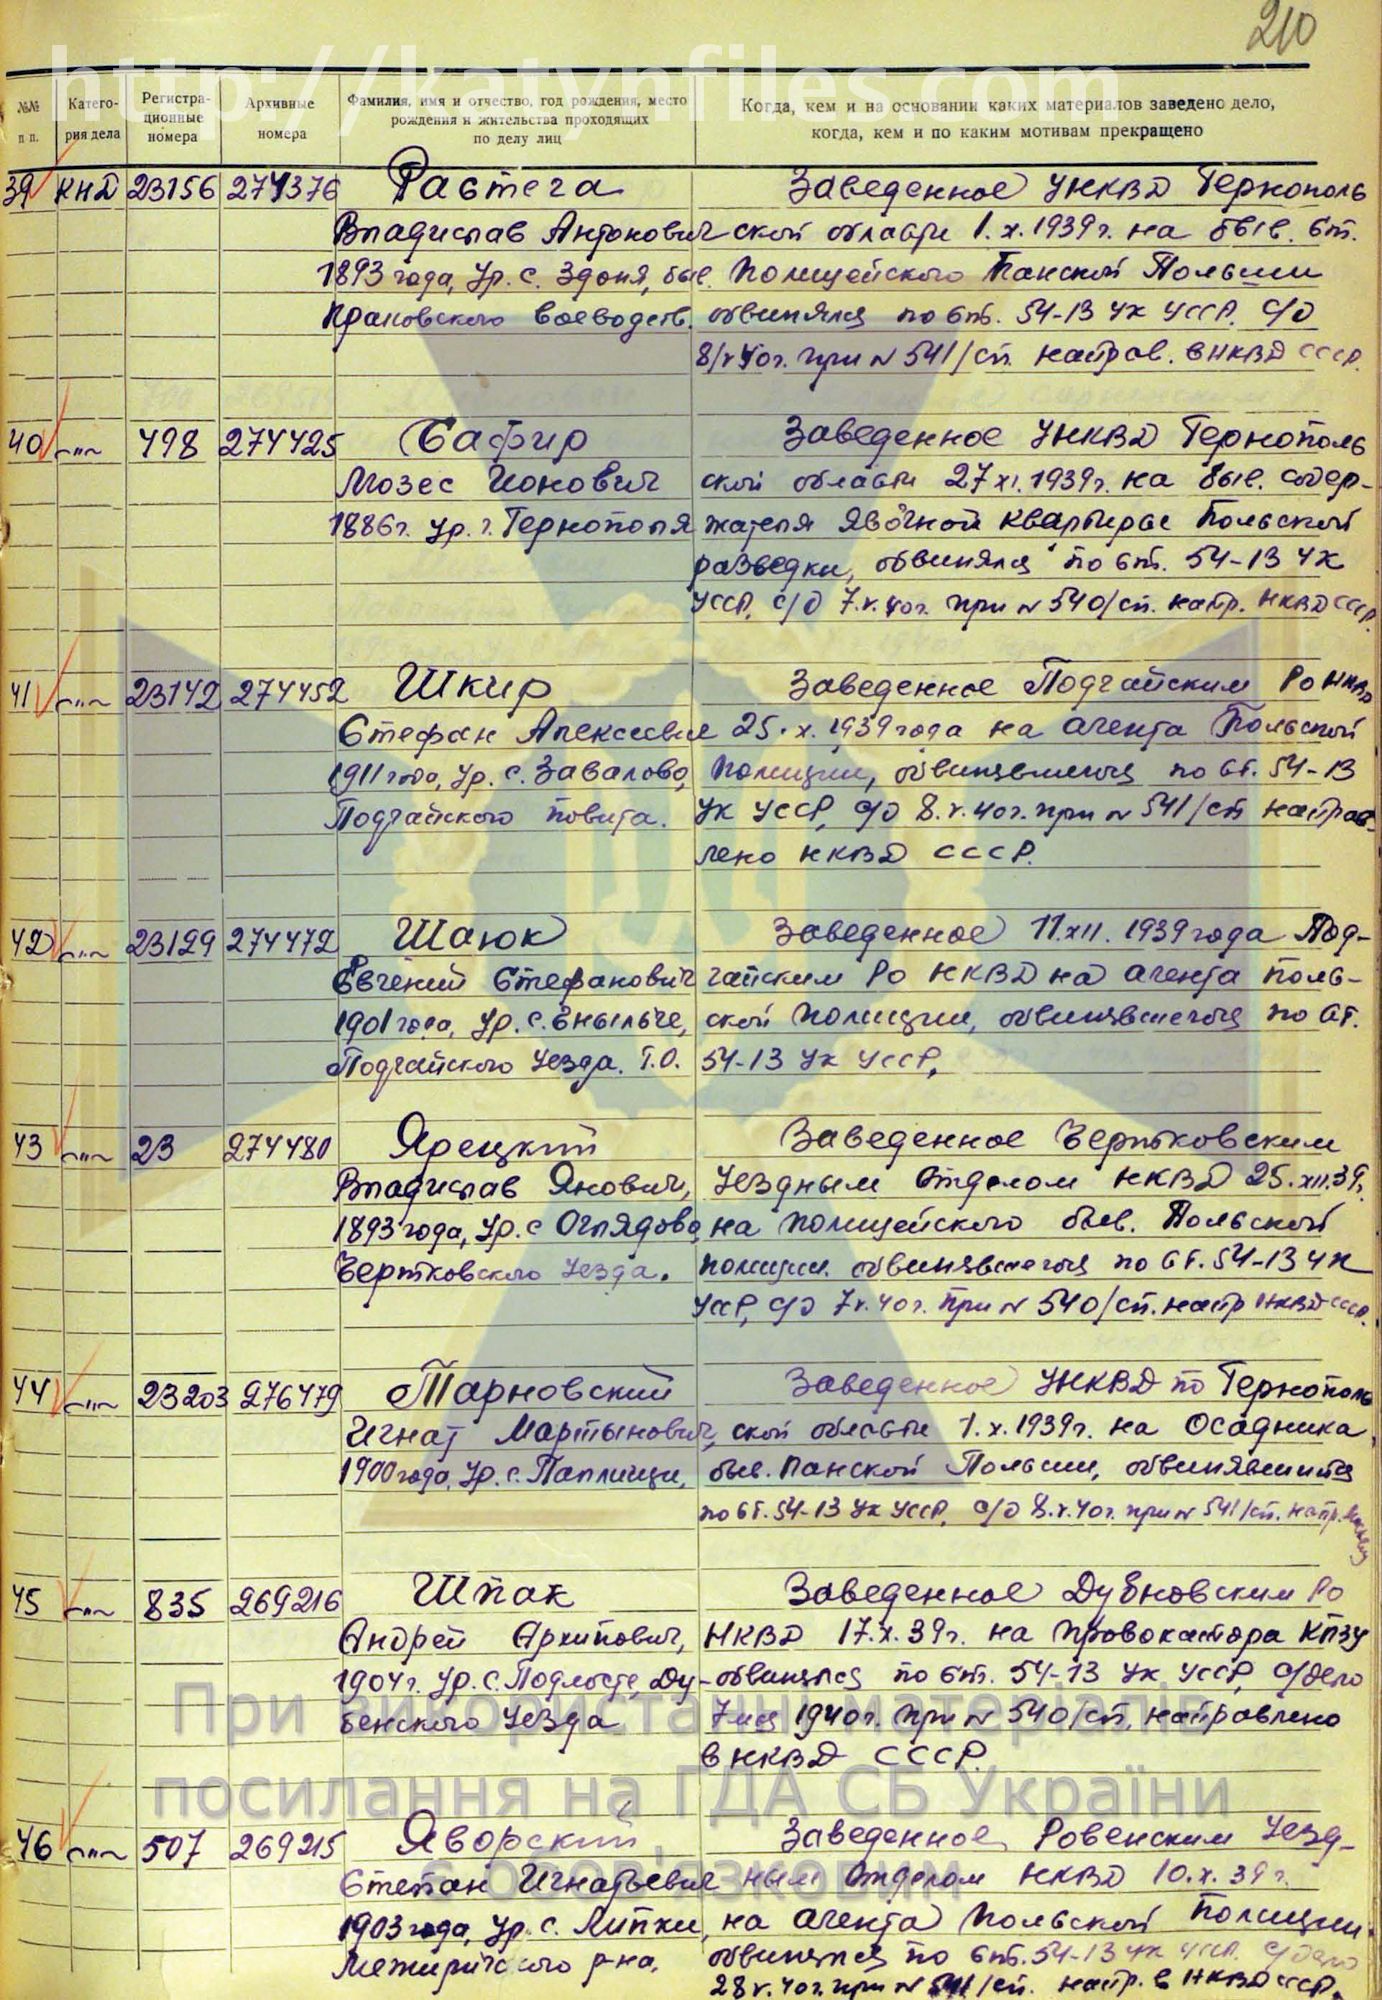 210
http://katynfiles.com
№№ п п.
Катего-
рия дела
Регистра-
ционные
номера
Архивные
номера
Фамилия, имя и отчество, год рождения, место
рождения и жительства проходящих
по делу лиц
Когда, кем и на основании каких материалов заведено дело,
когда, кем и по каким мотивам прекращено
39 КНД 23156 274376 Растега Заведенное УНКВД Тернополь
Владислав Антонович ской области 1.х.1939г. на быв. ст.
1893 года, ур. с. Здоня, быв. полицейского Панской Польши
Краковского воеводств. обвинялся по ст. 54-13 УК УССР. с/д
8/v 40г. при № 541/сп. направ. в НКВД СССР.
40 —"— 498 274425 Сафир Заведенное УНКВД Тернополь
Мозес Ионович ской области 27 xi.1939г. на быв. содер-
1886г. ур. г. Тернополя жателя явочной квартиры Польской
разведки, обвинялся по ст. 54-13 УК
УССР, с/д 7.v.40г. при № 540/сп. напр. НКВД СССР.
41 —"— 23142 274452 Шкир Заведенное Подгайским РО НКВД
Стефан Алексеевич 25.х.1939 года на агента Польской
1911 года, ур. с. Завалово, полиции, обвинявшегося по ст. 54-13
Подгайского повита. УК УССР, с/д 8.v.40г. при № 541/сп направ-
лено НКВД СССР.
42 —"— 23129 274472 Шаюк Заведенное 11.xii.1939 года Под-
Евгений Стефанович гайским РО НКВД на агента поль-
1901 года, ур. с. ской полиции, обвинявшегося по ст.
Подгайского уезда. Т.О. 54-13 УК УССР,
43 —"— 23 274480 Ярецкий Заведенное Чертковским
Владислав Янович, Уездным отделом НКВД 25.xii.39г.
1893 года, ур. с Оглядово, на полицейского быв. Польской
Чертковского уезда. полиции обвинявшегося по ст. 54-13 УК
УССР, с/д 7v.40г. при № 540/сп. напр НКВД СССР.
44 —"— 23203 276479 Тарновский Заведенное УНКВД по Тернополь
Игнат Мартынович, ской области 1.х.1939г. на Осадника
1900 года, ур. с. Паплинци, быв. панской Польши, обвинявшийся
по ст. 54-13 УК УССР, с/д 8.v.40г. при № 541/сп. напр. Москву
45 —"— 835 269216 Шпак Заведенное Дубновским РО
Андрей Архипович, НКВД 17.х.39г. на провокатора КПЗУ
1904г. ур. с. Подлосте, Ду- обвинялся по ст. 54-13 УК УССР, с/дело
бенского уезда 7 мая 1940г. при № 540/сп, направлено
в НКВД СССР.
46 —"— 507 269215 Яворский Заведенное Ровенским Уезд-
Степан Игнатьевич ным отделом НКВД 10.х.39г.
1903 года, ур. с. Липки, на агента польской полиции.
Межиричского р-на. обвинялся по ст. 54-13 УК УССР. с/дело
28 v.40г. при № 541/сп. напр. в НКВД СССР.
При використанні матеріалів
посилання на ГДА СБ України
є обов'язковим